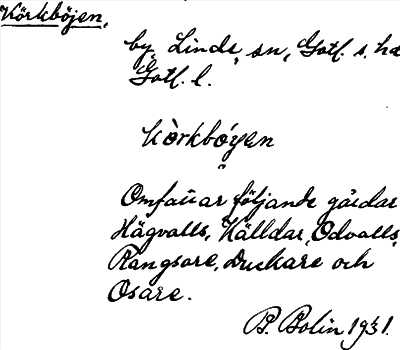 Körkböjen,
by, Linde, sn, Gotl. s. hd
Gotl. l.
kòrkbóyen
Omfattar följande gårdar
Hägvalls, Källdar, Odvalls,
Rangsare, Duckare och
Osare.
B. Bolin 1931.